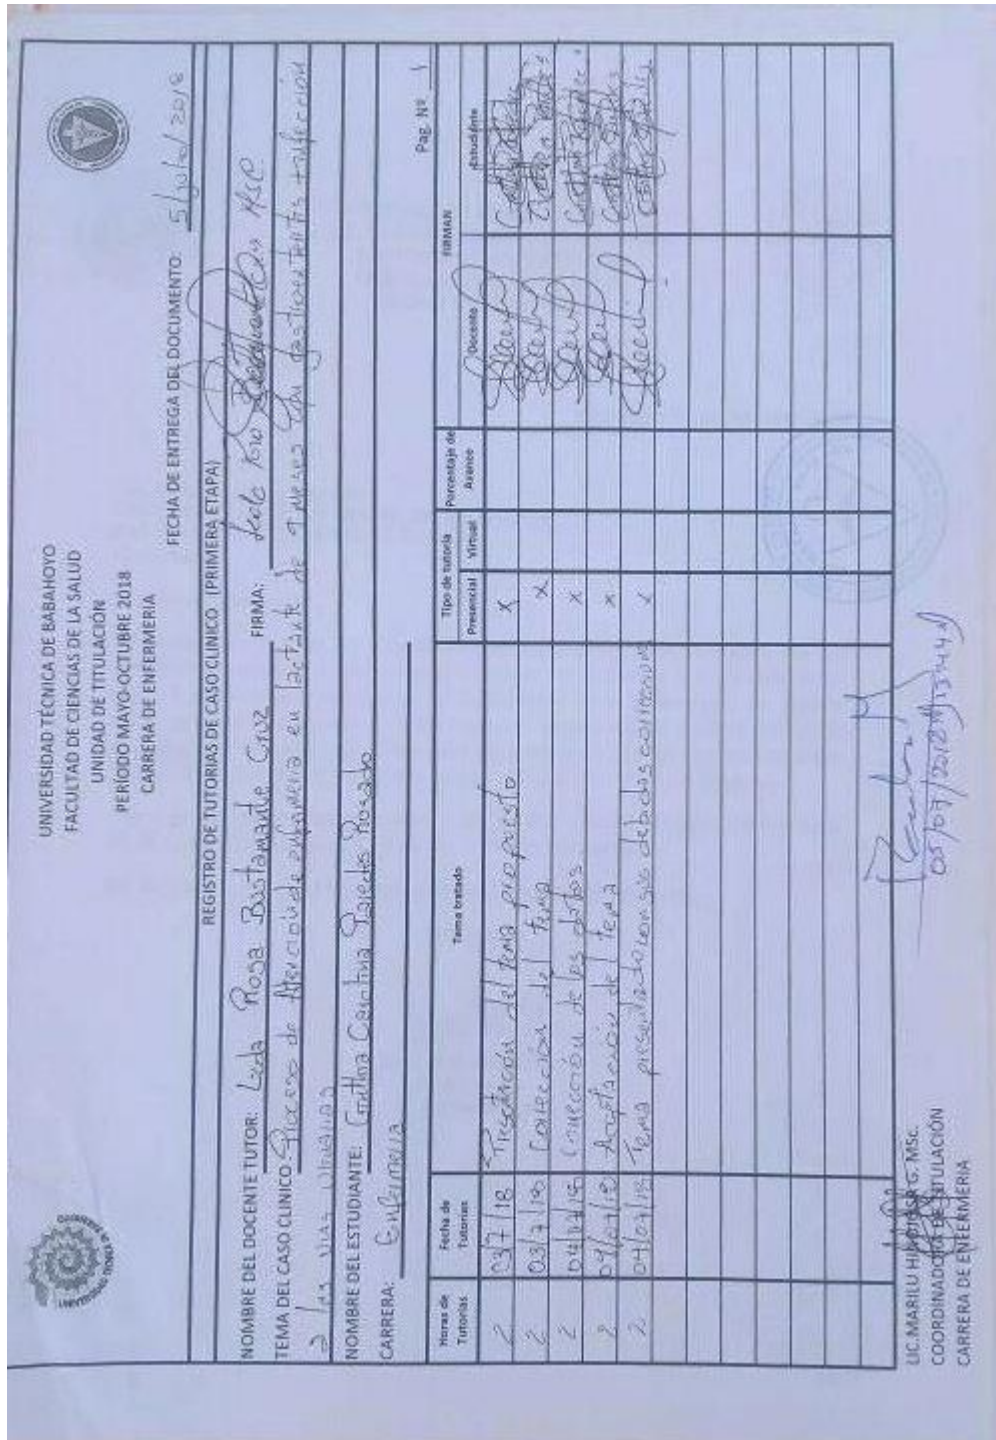 UNIVERSIDAD TÉCNICA DE BABAHOYO
FACULTAD DE CIENCIAS DE LA SALUD
UNIDAD DE TITULACIÓN
PERÍODO MAYO-OCTUBRE 2018
CARRERA DE ENFERMERIA
FECHA DE ENTREGA DEL DOCUMENTO: 5/julio/2018
REGISTRO DE TUTORIAS DE CASO CLINICO (PRIMERA ETAPA)
NOMBRE DEL DOCENTE TUTOR: Leda Rosa Bustamante Cruz FIRMA:
TEMA DEL CASO CLINICO: Proceso de Atencion de enfermeria en lactante de 9 meses con gastroenteritis + infeccion
a las vias urinarias
NOMBRE DEL ESTUDIANTE: Carolina Paredes Rosado
CARRERA: Enfermeria
Pag. Nº 1
Horas de Tutorias Fecha de Tutorias Tema tratado Tipo de tutoría Porcentaje de Avance FIRMAN
Presencial Virtual Docente Estudiante
2 037/18 del tema propuesto x
2 03/7/18 Correccion del tema x
2 04/07/18 Correccion de los datos x
2 04/07/18 Aceptacion del tema x
2 04/07/18 Tema presentado con sus debidas x
05/07/2018
LIC. MARILU G. MSc.
COORDINADORA DE TITULACIÓN
CARRERA DE ENFERMERIA